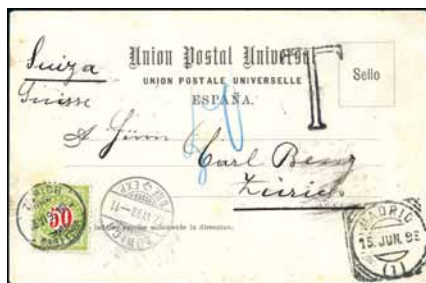 Suiza
Suisse
Union Postal Universal
T
UNION POSTALE UNIVERSELLE
Sello
ESPAÑA.
50
A Herrn
Carl Benz
Zürich
50
MADRID
15 JUN. 9
(1)